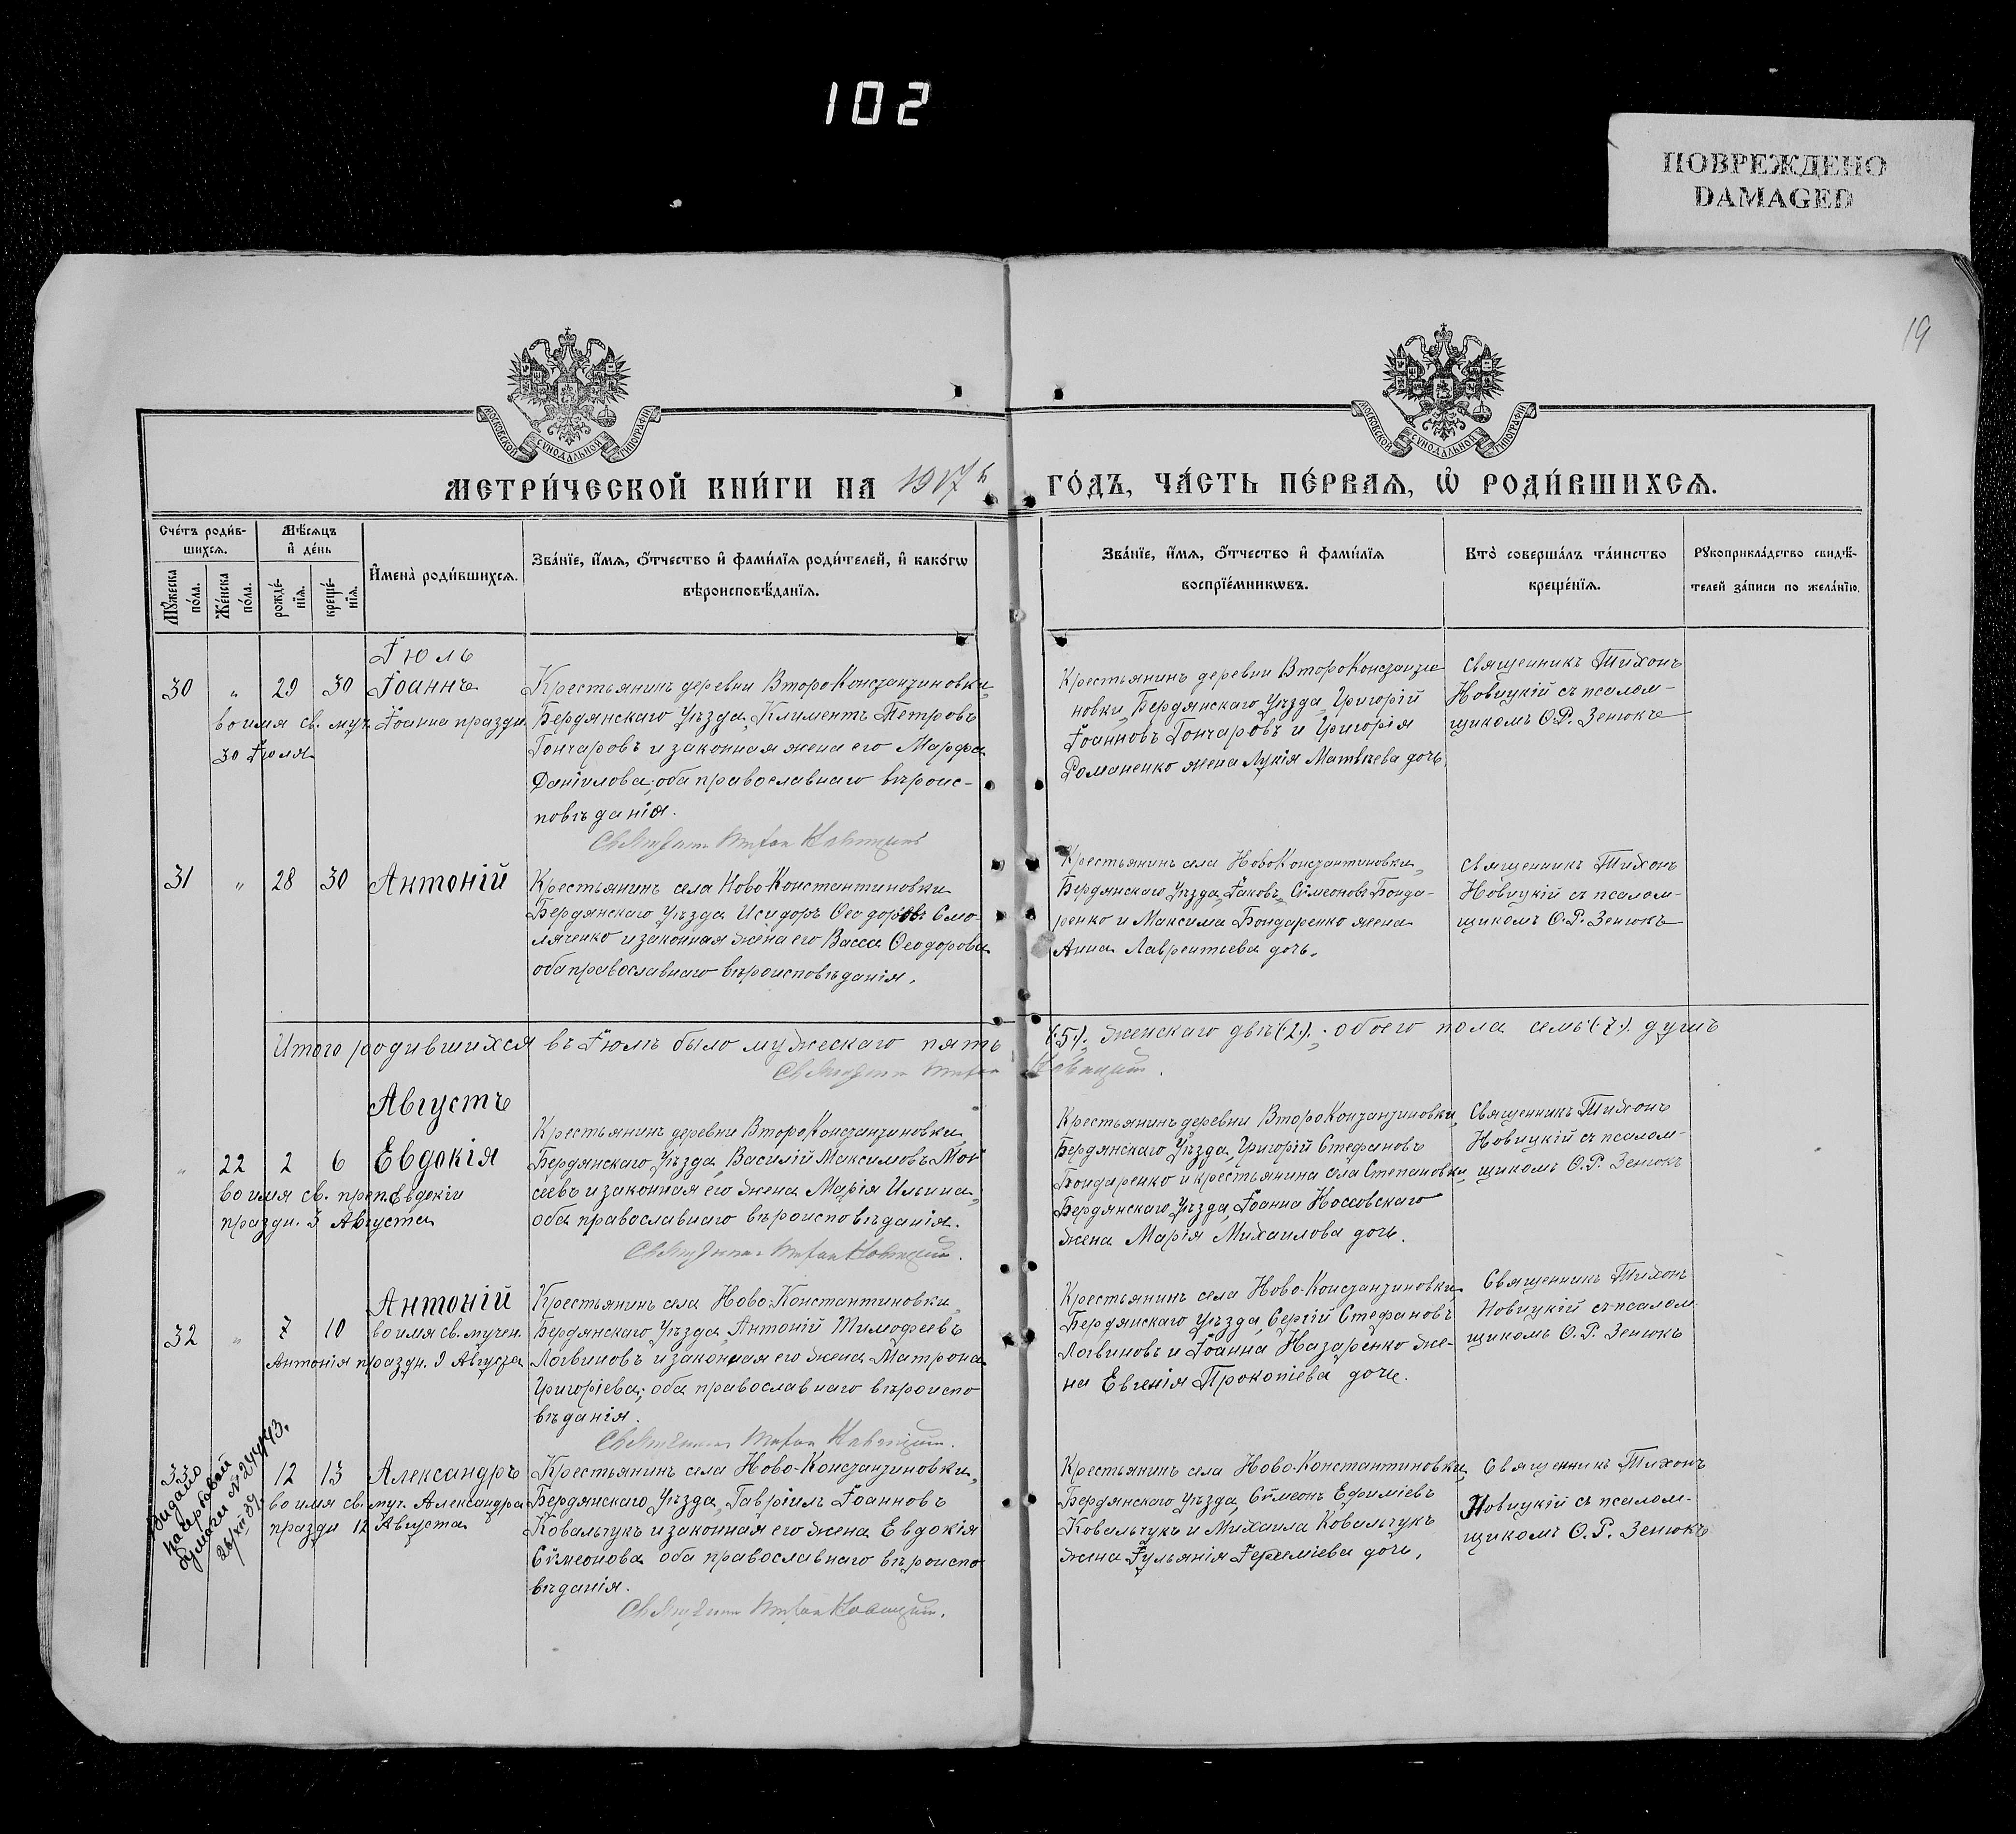 102
ПОВРЕЖДЕНО
DAMAGED
19
МОСКОВСКОЙ СѴНОДАЛЬНОЙ ТИПОГРАФІИ
МОСКОВСКОЙ СѴНОДАЛЬНОЙ ТИПОГРАФІИ
МЕТРИ́ЧЕСКОЙ КНИ́ГИ НА 1917й ГО́ДЪ, ЧА́СТЬ ПЕ́РВАѦ, Ѡ҆ РОДИ́ВШИХСѦ.
Сче́тъ роди́в-
шихсѧ.
Мꙋ́жеска по́ла.
Же́нска по́ла.
Мѣ́сѧцъ
и҆ де́нь
рожде́-
нїѧ.
креще́-
нїѧ.
И҆мена̀ роди́вшихсѧ.
Зва́нїе, и҆́мѧ, ѻ҆́тчество и҆ фами́лїѧ роди́телей, и҆ како́гѡ
вѣроисповѣ́данїѧ.
Зва́нїе, и҆́мѧ, ѻ҆́тчество и҆ фами́лїѧ
воспрїе́мникѡвъ.
Кто̀ соверша́лъ та́инство
креще́нїѧ.
Рꙋкоприкла́дство свидѣ́-
телей за́писи по жела́нїю.
Іюль
30 " 29 30 Іоаннъ
во имя св. муч. Іоанна праздн.
30 Іюля
Крестьянинъ деревни ВтороКонстантиновки,
Бердянскаго Уѣзда, Климентъ Петровъ
Гончаровъ и законная жена его Марфа
Даніилова, оба православнаго вѣроис-
повѣданія.
Священник Тихон Новицкий
Крестьянинъ деревни ВтороКонстанти
новки, Бердянскаго Уѣзда, Григорій
Іоанновъ Гончаровъ и Григорія
Романенко жена Лукія Матвѣева дочь
Священникъ Тихонъ
Новицкій съ псалом-
щикомъ Ѳ.Р. Зенюкъ
31 " 28 30 Антоній
Крестьянинъ села НовоКонстантиновки
Бердянскаго Уѣзда Исидоръ Ѳеодоровъ Смо-
ляченко и законная жена его Васса Ѳеодорова
оба православнаго вѣроисповѣданія.
Крестьянинъ села НовоКонстантиновки,
Бердянскаго Уѣзда, Іаковъ Сѵмеоновъ Бонда-
ренко и Максима Бондаренко жена
Анна Лаврентьева дочь.
Священникъ Тихонъ
Новицкій съ псалом-
щикомъ Ѳ.Р. Зенюкъ
Итого родившихся въ Іюлѣ было мужескаго пять (5), женскаго двѣ (2), обоего пола семь (7) душъ
Священник Тихон Новицкий.
Августъ
" 22 2 6 Евдокія
во имя св. преп. Евдокіи
праздн. 3 Августа
Крестьянинъ деревни ВтороКонстантиновки,
Бердянскаго Уѣзда, Василій Максимовъ Мои
сеевъ и законная его жена Марія Ильина,
оба православнаго вѣроисповѣданія.
Священник Тихон Новицкий.
Крестьянинъ деревни ВтороКонстантиновки,
Бердянскаго Уѣзда, Григорій Стефановъ
Бондаренко и крестьянина села Степановки,
Бердянскаго Уѣзда, Іоанна Носовскаго
жена Марія Михаилова дочь.
Священникъ Тихонъ
Новицкій съ псалом-
щикомъ Ѳ.Р. Зенюкъ
32 " 7 10 Антоній
во имя св. мучен.
Антонія праздн. 9 Августа
Крестьянинъ села Ново-Константиновки,
Бердянскаго Уѣзда, Антоній Тимофеевъ
Логвиновъ и законная его жена Матрона
Григоріева; оба православнаго вѣроиспо
вѣданія.
Священник Тихон Новицкий.
Крестьянинъ села Ново-Константиновки
Бердянскаго Уѣзда, Сергій Стефановъ
Логвиновъ и Іоанна Назаренко же-
на Евгенія Прокопіева дочь.
Священникъ Тихонъ
Новицкій съ псалом
щикомъ Ѳ.Р. Зенюкъ
33 12 13 Александръ
во имя св. муч. Александра
праздн 12 Августа
Видано
на гербовой
бумаги № 244443.
26/XII 39
Крестьянинъ села Ново-Константиновки,
Бердянскаго Уѣзда, Гавріилъ Іоанновъ
Ковальчукъ и законная его жена Евдокія
Сѵмеонова оба православнаго вѣроиспо
вѣданія.
Священник Тихон Новицкий.
Крестьянинъ села Ново-Константиновки,
Бердянскаго Уѣзда, Сѵмеонъ Ефиміевъ
Ковальчукъ и Михаила Ковальчукъ
жена Іульянія Іереміева дочь,
Священникъ Тихонъ
Новицкій съ псалом-
щикомъ Ѳ.Р. Зенюкъ